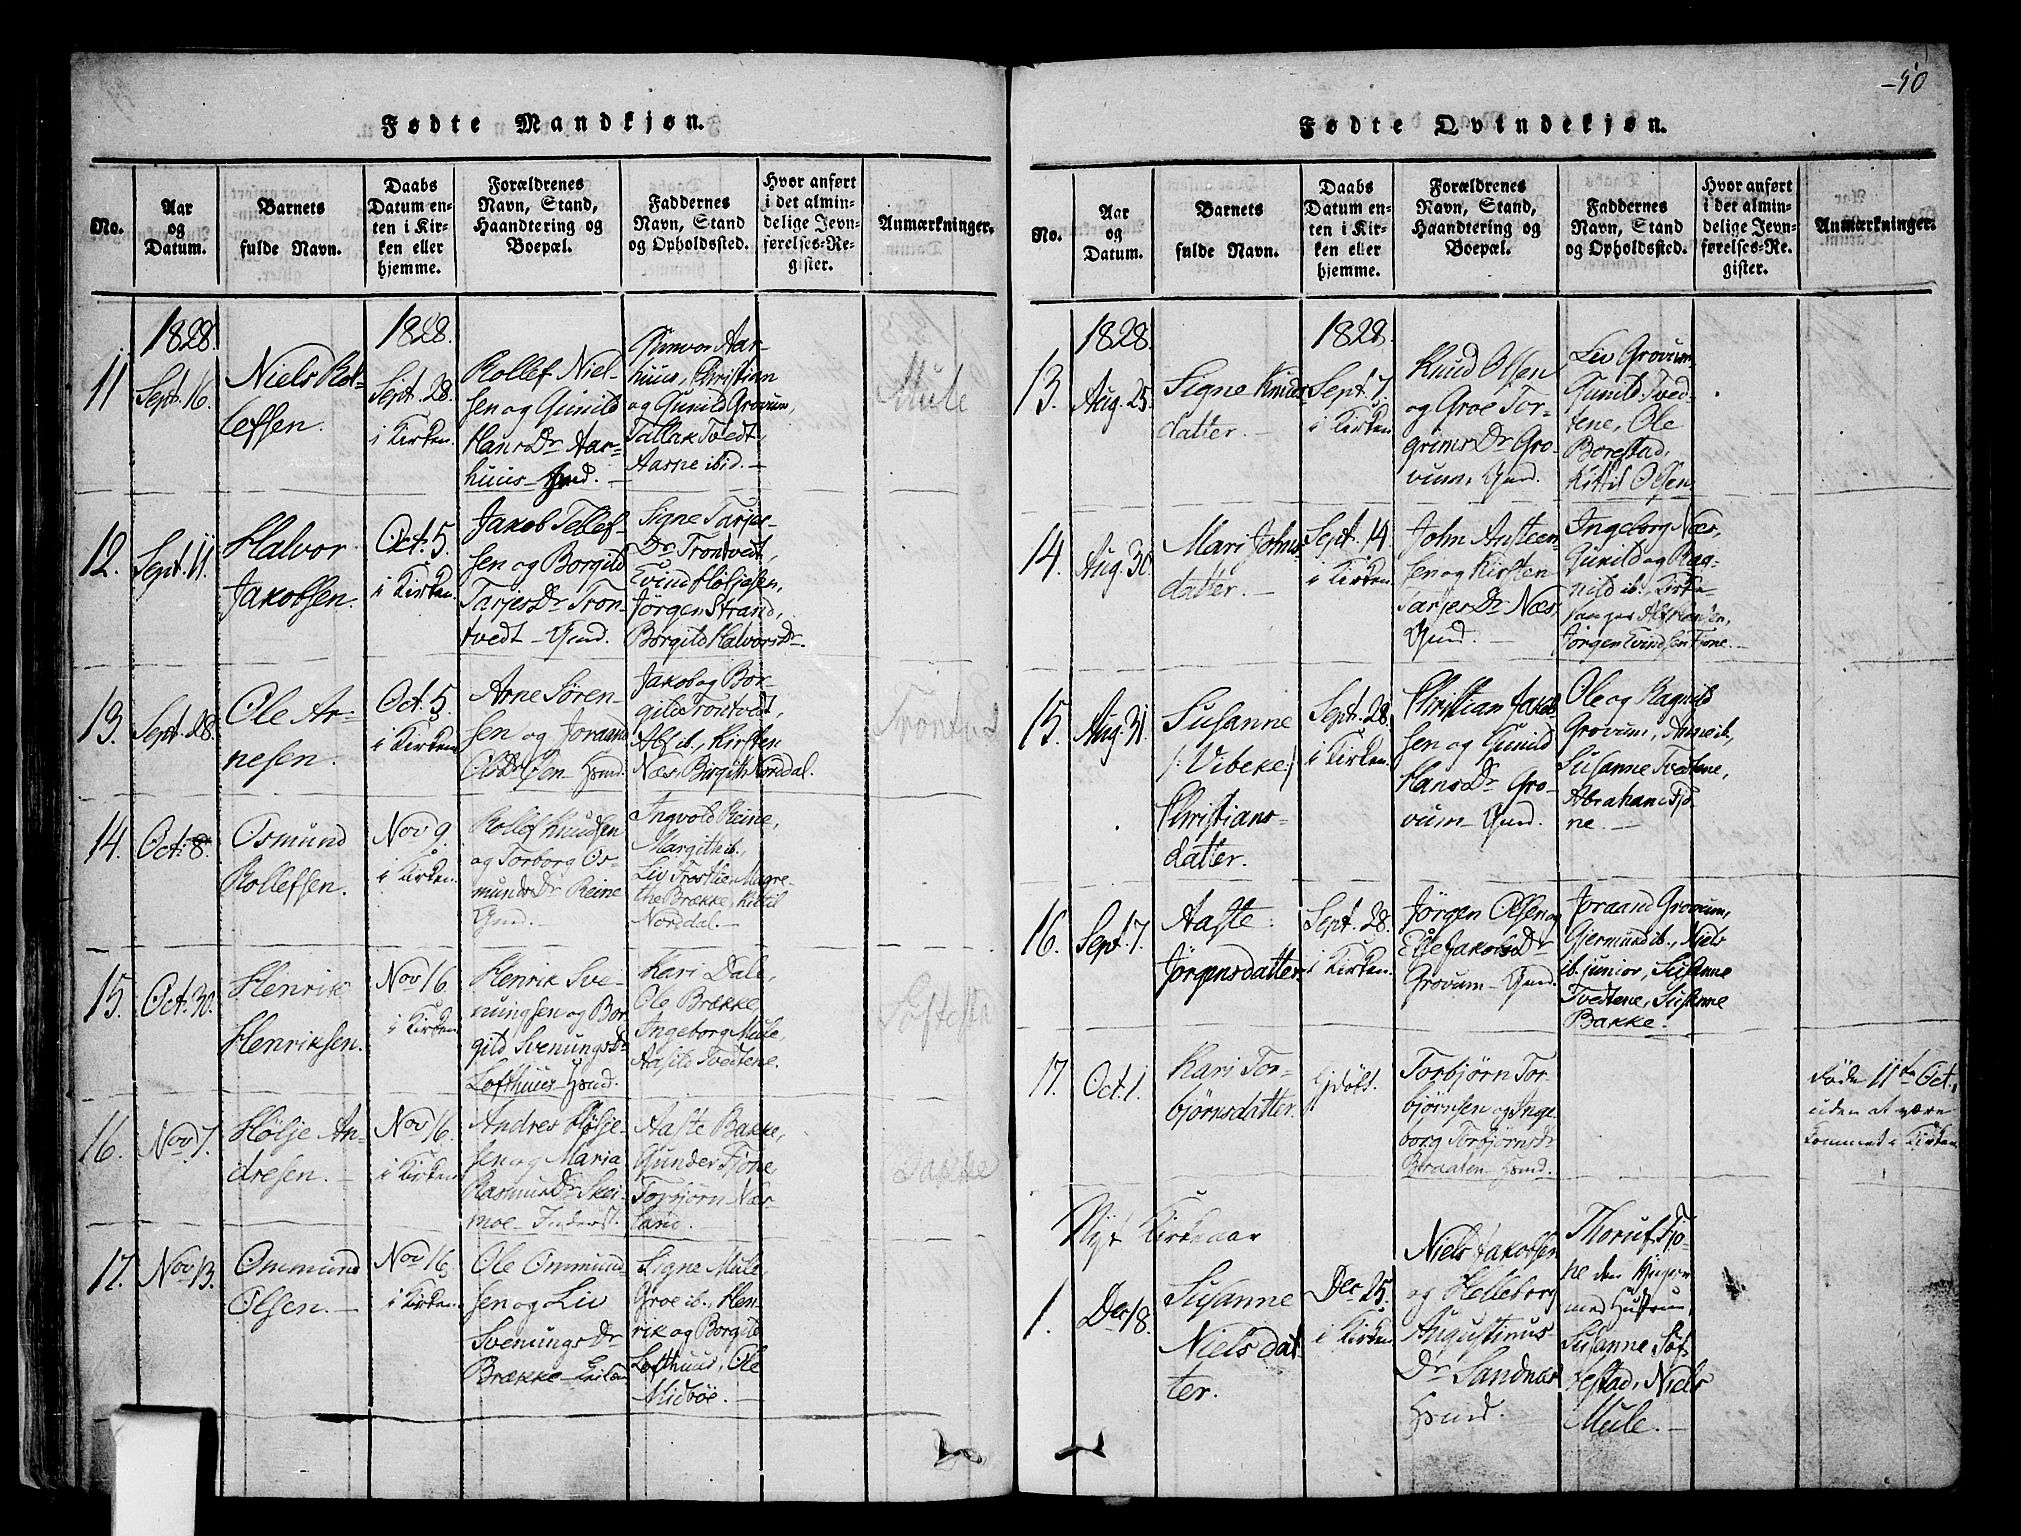 Fødte Mandkjøn.
No.
Aar
og
Datum.
Barnets
fulde Navn.
Daabs
Datum en-
ten i Kir-
ken eller
hjemme.
Forældrenes
Navn, Stand,
Haandtering og
Boepæl.
Faddernes
Navn, Stand
og Opholdssted.
Hvor anført
i det almin-
delige Jevn-
førelses-Re-
gister.
Anmærkninger.
11
1828.
Sept. 16.
Niels Rol-
lefsen.
1828.
Sept. 28.
i Kirken.
Rollef Niel-
sen og Gunild
Hans Dr Aar-
huus
Gunvor Aar-
huus, Christian
og Gunild Grovum,
Tallak Tvedt,
Aasne ibid. –
Mule
12.
Sept. 11.
Halvor
Jakobsen.
Oct. 5.
i Kirken.
Jakob Tellef-
sen og Borgild
Tarjes Dr Tron-
tvedt –
Signe Tarjes-
Dr Trontvedt,
Evind Höljesen,
Jörgen Strand,
Borgild Halvors Dr –
13.
Sept. 28.
Ole Ar-
nesen. –
Oct. 5.
i Kirken
Arne Sören-
sen og Joraand
Jakob og Bor-
gild Trontvedt,
ib., Kirsten
Næs, Birgith Norddal.
Trontved
14.
Oct. 8.
Osmund
Rollefsen.
Nov 9.
i Kirken.
Rollef Knudsen
og Torborg Os-
munds Dr Reine
Ingvold Reine,
Margith ib.,
Liv Trostien, Magre-
the Brække, Kittil
Norddal. –
15.
Oct. 30.
Henrik
Henriksen.
Nov 16.
i Kirken
Henrik Sve-
nungsen og Bor-
gild Svenungs Dr
Lofthuus –
Kari Dale,
Ole Brække,
Ingeborg Mule,
Aasild Tvedtene.
16.
Nov 7.
Hölje An-
dresen. –
Nov 16.
i Kirken
Andres Hölje-
sen og Maria
Rasmus Dr Skei-
moe –
Aaste Bakke,
Gunder Fjone,
Torbjörn Næs-
land. –
Bakke
17.
Nov 13.
Ommund
Olsen. –
Nov 16.
i Kirken
Ole Ommund-
sen og Liv
Svenungs Dr
Brække –
Signe Mule,
Groe ib., Hen-
rik og Borgild
Lofthuus, Ole
Midböe. –
Fødte Qvindekjøn.
No.
Aar
og
Datum.
Barnets
fulde Navn.
Daabs
Datum en-
ten i Kir-
ken eller
hjemme.
Forældrenes
Navn, Stand,
Haandtering og
Boepæl.
Faddernes
Navn, Stand
og Opholdssted.
Hvor anført
i det almin-
delige Jevn-
førelses-Re-
gister.
Anmærkninger.
13.
1828.
Aug. 25.
Signe Knuds
datter. –
1828.
Sept. 7.
i Kirken
Knud Olsen
og Groe Tor-
grims Dr Gro-
vum,
Liv Grovum
Gunild Tved-
tene, Ole
Borestad,
Kittil Olsen
14.
Aug. 30.
Mari Johns
datter. –
Sept. 14.
i Kirken
John Austeen-
sen og Kirsten
Tarjes Dr Næs,
Ingeborg Næs,
Gunild og Rag-
nild ib., Kirke-
sanger
Jörgen Evindsen Fjone. –
15.
Aug. 31.
Susanne
/: Vibeke :/
Christians-
datter.
Sept. 28.
i Kirken.
Christian Jakob-
sen og Gunild
Hans Dr Gro-
vum –
Ole og Ragnild
Grovum, Anne ib.,
Susanne Tvedtene,
Abraham Fjo-
ne. –
16.
Sept. 7.
Aaste
Jörgensdatter.
Sept. 28.
i Kirken.
Jörgen Olsen og
Jakobs Dr
Grovum –
Joraand Grovum,
Gjermund ib., Niels
ib. junior, Susanne
Tvedtene, Susanne
Bakke.
17.
Oct. 1.
Kari Tor-
björnsdatter.
Torbjörn Tor-
björnsen og Inge
borg Torbjörns Dr
Braaten –
Döde 11te Oct.,
uden at være
kommet i Kirken
Nyt Kirkeaar
1.
Dec 18.
Susanne
Nielsdat
ter.
Dec 25.
i Kirken
Niels Jakobsen
og Helleborg
Augustinus-
Dr Sandnæs
Thoruf Fjo-
ne den yngere
med Hustrue,
Susanne Söf-
testad, Niels
Mule. –